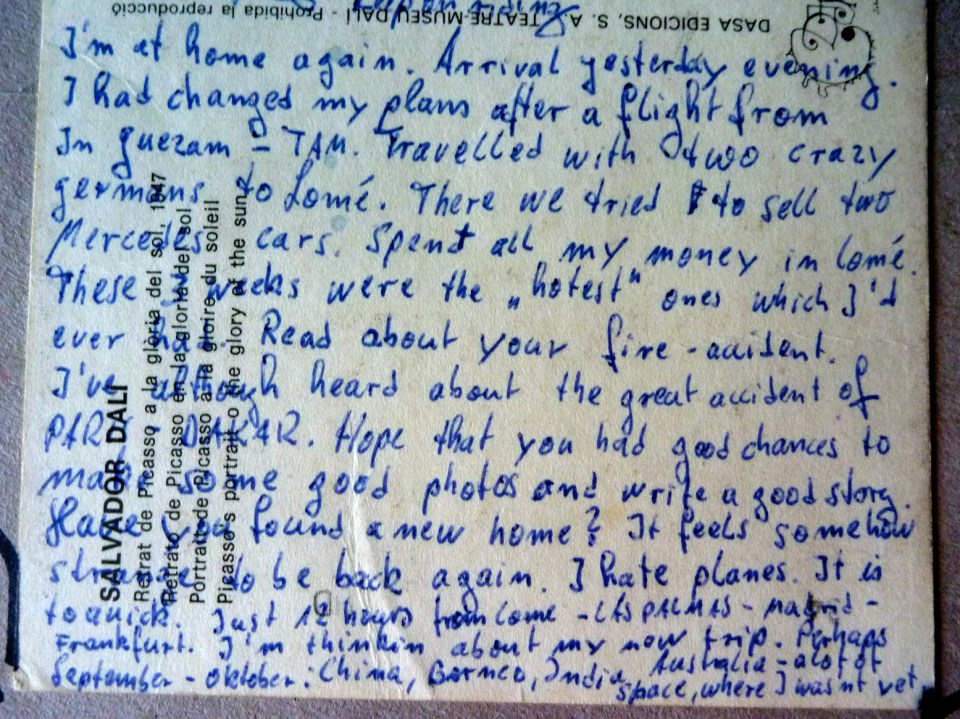 DASA EDICIONS, S. A. TEATRE-MUSEU DALÍ - Prohibida la reproducció
I'm at home again. Arrival yesterday evening.
I had changed my plans after a flight from
In guezam – TAM. Travelled with two crazy
germans to Lomé. There we tried to sell two
Mercedes cars. Spent all my money in lomé.
These weeks were the „hotest" ones which I'd
ever had. Read about your fire-accident.
I've although heard about the great accident of
PARIS-DAKAR. Hope that you had good chances to
make some good photos and write a good story.
Have you found a new home? It feels somehow
strange to be back again. I hate planes. It is
to quick. Just 12 hours from Lome - LAS PALMAS - Madrid -
Frankfurt. I'm thinkin about my new trip. Perhaps
September - oktober: China, Borneo, India, Australia - alot of
space, where I wasnt yet.
SALVADOR DALÍ
Retrat de Picasso a la glòria del sol, 1947
Retrato de Picasso en la gloria del sol
Portrait de Picasso à la gloire du soleil
Picasso's portrait o the glory of the sun